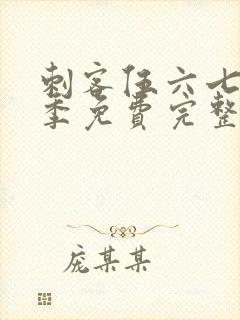 刺客伍六七
季免费完整
庞某某